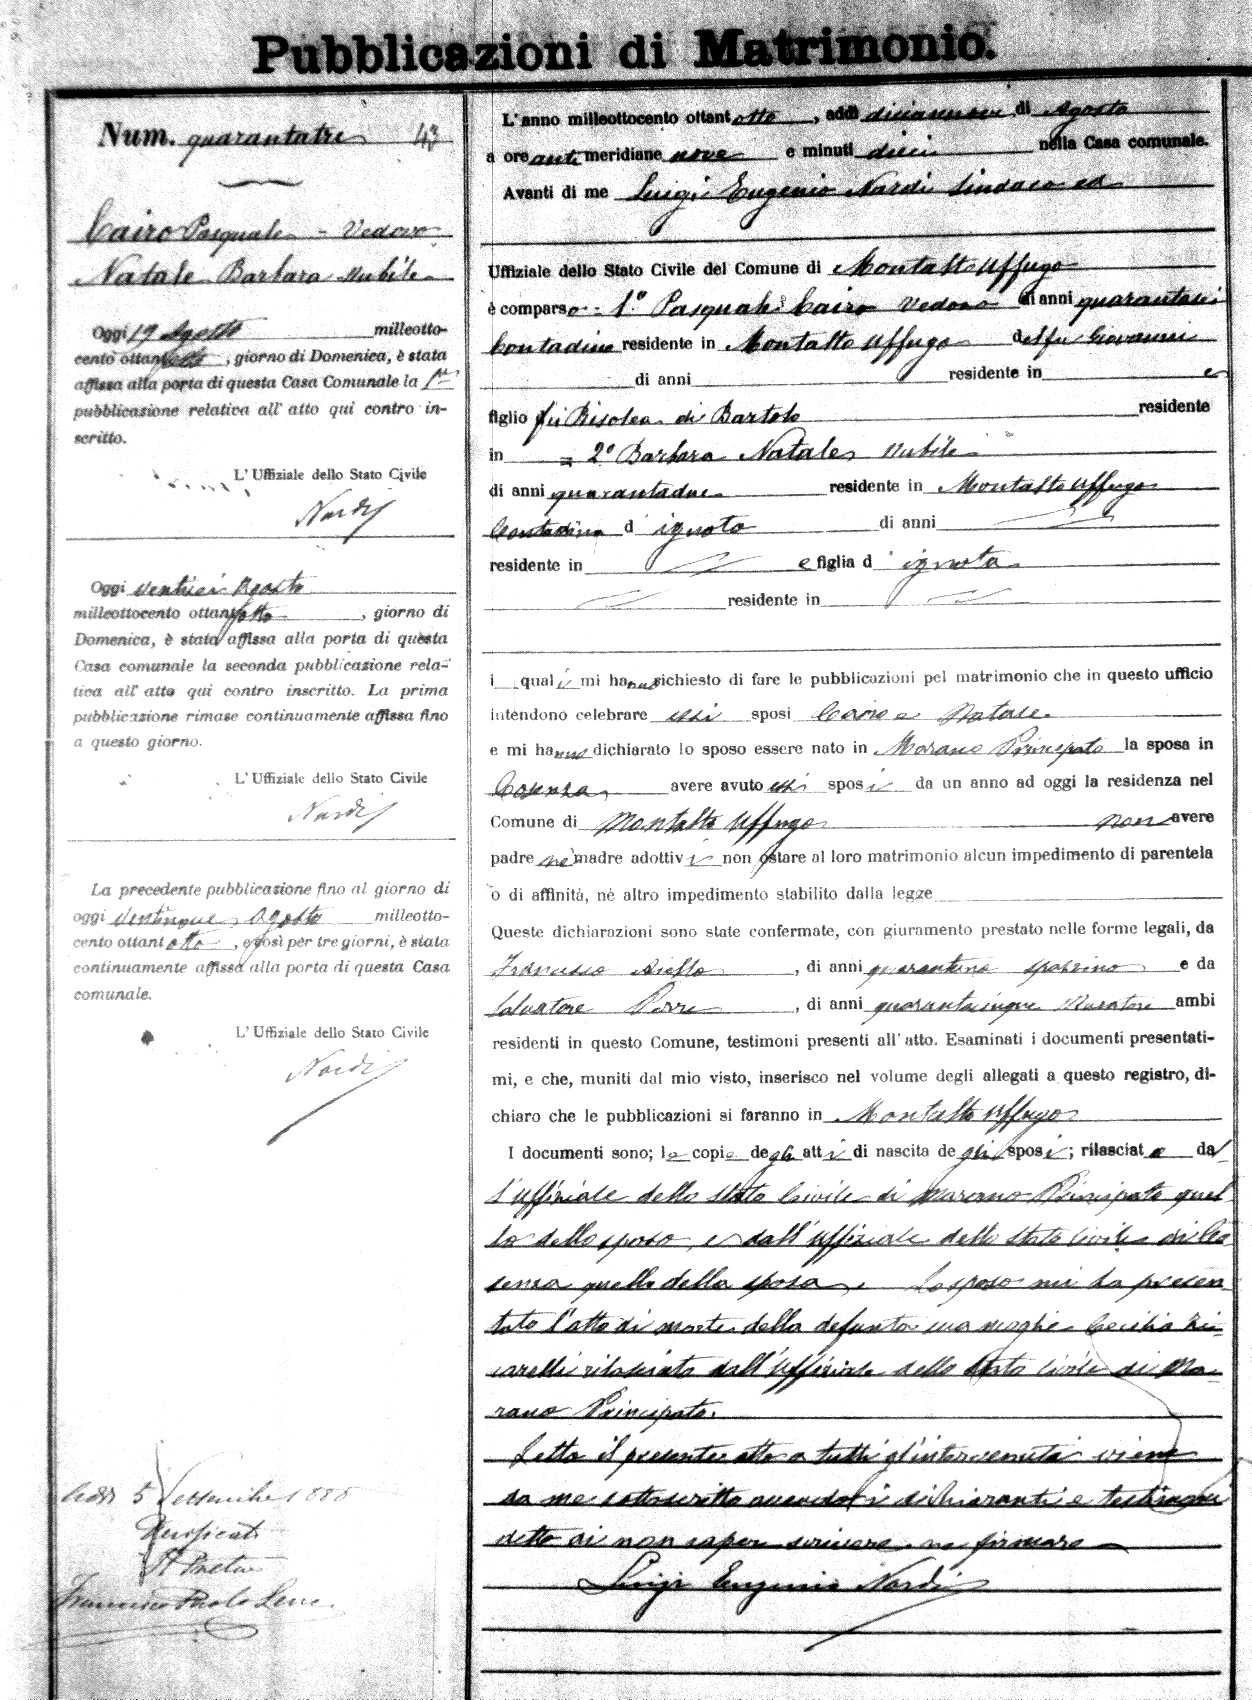 Pubblicazioni di Matrimonio.
Num. quarantatre 43
Cairo Pasquale - Vedovo
Natale Barbara nubile
Oggi 19 Agosto milleotto-
cento ottantotto, giorno di Domenica, è stata
affissa alla porta di questa Casa Comunale la 1ª
pubblicazione relativa all' atto qui contro in-
scritto.
L' Uffiziale dello Stato Civile
Nardi
Oggi ventisei Agosto
milleottocento ottantotto, giorno di
Domenica, è stata affissa alla porta di questa
Casa comunale la seconda pubblicazione rela-
tiva all' atto qui contro inscritto. La prima
pubblicazione rimase continuamente affissa fino
a questo giorno.
L' Uffiziale dello Stato Civile
Nardi
La precedente pubblicazione fino al giorno di
oggi Agosto milleotto-
cento ottantotto, e così per tre giorni, è stata
continuamente affissa alla porta di questa Casa
comunale.
L' Uffiziale dello Stato Civile
Nardi
5 Settembre 1888
Verificato
Il Pretore
Francesco Paolo
L'anno milleottocento ottantotto, addì diciannove di Agosto
a ore antimeridiane nove e minuti dieci nella Casa comunale.
Avanti di me Luigi Eugenio Nardi Sindaco ed
Uffiziale dello Stato Civile del Comune di Montalto Uffugo
è comparso - 1º Pasquale Cairo Vedovo di anni quarantasei
Contadino residente in Montalto Uffugo del fu Giovanni
di anni residente in e
figlio di Bartolo residente
in = 2º Barbara Natale nubile
di anni quarantadue residente in Montalto Uffugo
Contadina d' ignoto di anni
residente in e figlia d' ignota
residente in
i quali mi hanno richiesto di fare le pubblicazioni pel matrimonio che in questo ufficio
intendono celebrare essi sposi Cairo e Natale
e mi hanno dichiarato lo sposo essere nato in Marano Principato la sposa in
Cosenza avere avuto essi sposi da un anno ad oggi la residenza nel
Comune di Montalto Uffugo non avere
padre nè madre adottivi non ostare al loro matrimonio alcun impedimento di parentela
o di affinità, nè altro impedimento stabilito dalla legge
Queste dichiarazioni sono state confermate, con giuramento prestato nelle forme legali, da
Francesco Aiello, di anni quarantuno spazzino e da
Salvatore, di anni quarantacinque Muratore ambi
residenti in questo Comune, testimoni presenti all' atto. Esaminati i documenti presentati-
mi, e che, muniti dal mio visto, inserisco nel volume degli allegati a questo registro, di-
chiaro che le pubblicazioni si faranno in Montalto Uffugo
I documenti sono; le copie degli atti di nascita degli sposi; rilasciate dal
l'uffiziale dello Stato Civile di Marano Principato quel
lo dello sposo, e dall'uffiziale dello Stato Civile di Co
senza quello della sposa. Lo sposo mi ha presen-
tato l'atto di morte della defunta sua moglie Cecilia
rilasciato dall'Uffiziale dello Stato Civile di Ma-
rano Principato.
Letto il presente atto a tutti gl'intervenuti viene
da me sottoscritto avendo i dichiaranti e testimoni
detto di non saper scrivere ne firmare
Luigi Eugenio Nardi